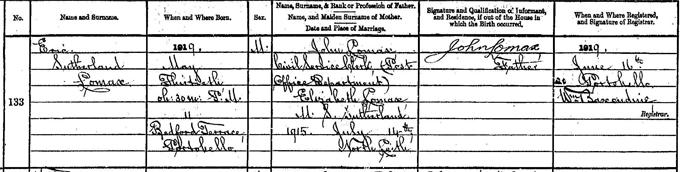 No.
Name and Surname.
When and Where Born.
Sex.
Name, Surname, & Rank or Profession of Father.
Name, and Maiden Surname of Mother.
Date and Place of Marriage.
Signature and Qualification of Informant,
and Residence, if out of the House in
which the Birth occurred.
When and Where Registered,
and Signature of Registrar.
133
Eric
Sutherland
Lomax
1919.
May
Thirtieth
0h. 30m. P.M.
11
Bedford Terrace
Portobello
M.
John Lomax
Civil Service Clerk (Post
Office Department)
Elizabeth Lomax
M. S. Sutherland
1915. July 14th
North Leith
John Lomax
Father
1919.
June 16th
at Portobello
Wm
Registrar.